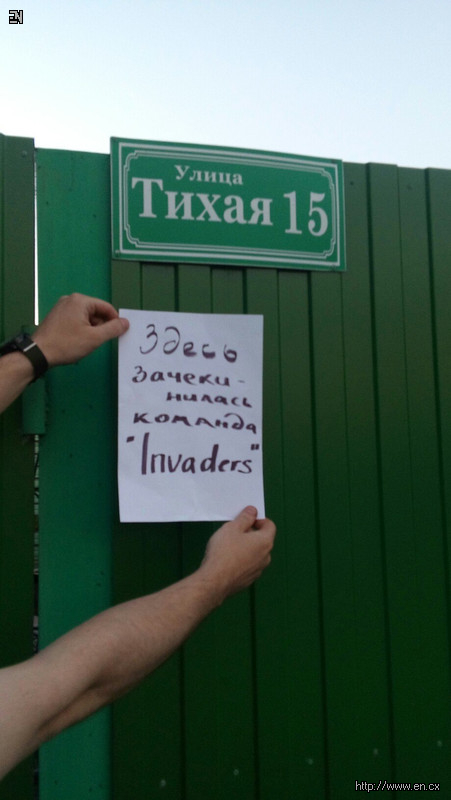 EN
Улица
Тихая 15
Здесь
зачеки-
нилась
команда
"Invaders"
http://www.en.cx